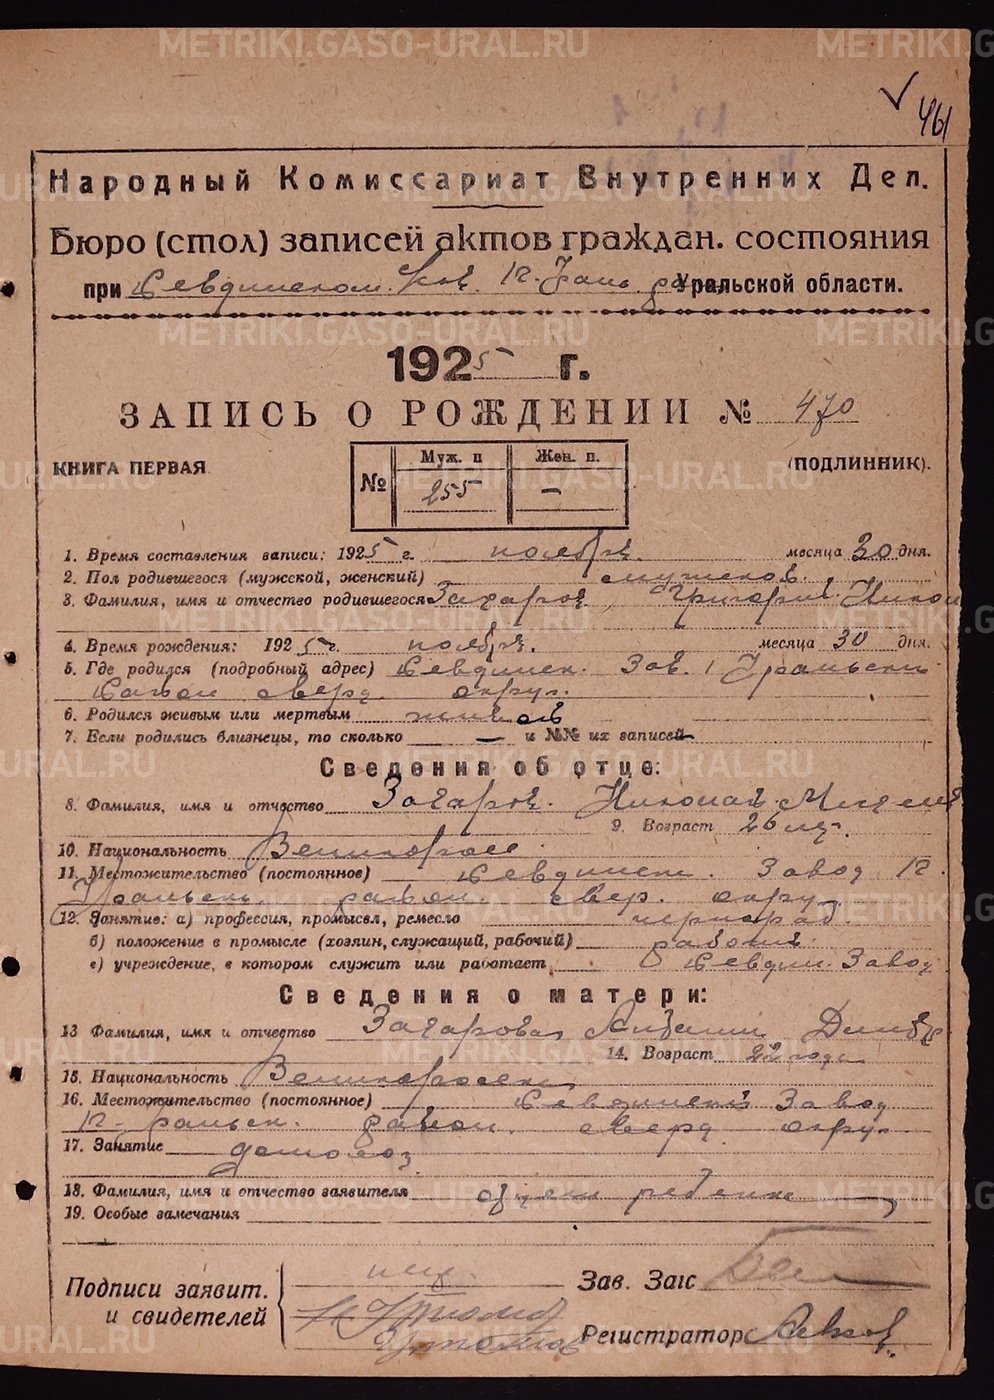 METRIKI.GASO-URAL.RU
461
Народный Комиссариат Внутренних Дел.
Бюро (стол) записей актов граждан. состояния
при Уральской области.
1925 г.
ЗАПИСЬ О РОЖДЕНИИ № 470
КНИГА ПЕРВАЯ
№ Муж. п 255 Жен. п. —
(ПОДЛИННИК).
1. Время составления записи: 1925 г. ноября месяца 30 дня.
2. Пол родившегося (мужской, женский) мужской.
3. Фамилия, имя и отчество родившегося Захаров, Григорий Никол
4. Время рождения: 1925 г. ноября. месяца 30 дня.
5. Где родился (подробный адрес) Зав.
округ.
6. Родился живым или мертвым живой
7. Если родились близнецы, то сколько — и №№ их записей
Сведения об отце:
8. Фамилия, имя и отчество Захаров. Николай
9. Возраст 26 лет.
10. Национальность Великоросс
11. Местожительство (постоянное) Завод
район. свер. округ
12. Занятие: а) профессия, промысел, ремесло чернораб.
б) положение в промысле (хозяин, служащий, рабочий) рабочий.
в) учреждение, в котором служит или работает Завод
Сведения о матери:
13 Фамилия, имя и отчество Захарова
14. Возраст 22 года
15. Национальность Великоросска
16. Местожительство (постоянное) Завод
район. сверд округ.
17. Занятие домохоз.
18. Фамилия, имя и отчество заявителя отец ребенка
19. Особые замечания
Подписи заявит.
и свидетелей
Зав. Загс
Регистратор